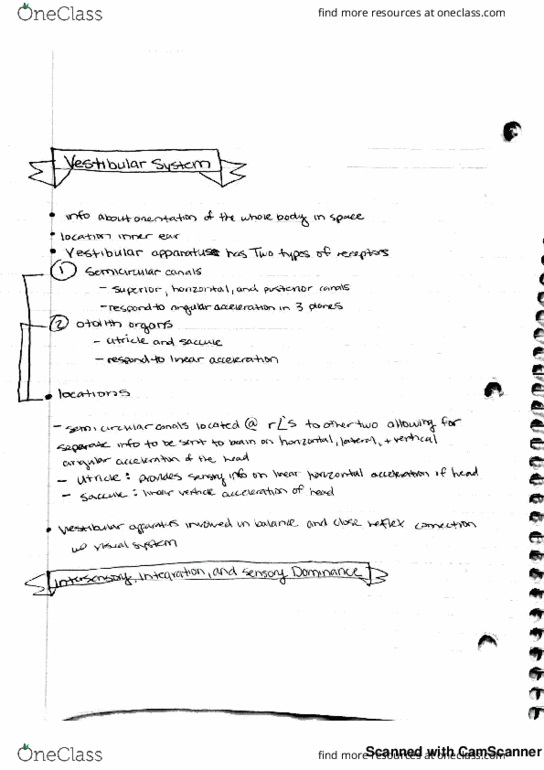 OneClass
find more resources at oneclass.com
Vestibular System
• info about orientation of the whole body in space
• location inner ear
• Vestibular apparatus has Two types of receptors
① Semicircular canals
- superior, horizontal, and posterior canals
- respond to angular acceleration in 3 planes
② otolith organs
- utricle and saccule
- respond to linear acceleration
• locations
- semicircular canals located @ r∠'s to other two allowing for
separate info to be sent to brain on horizontal, lateral, + vertical
angular acceleration of the head
- utricle: provides sensory info on linear horizontal acceleration of head
- saccule: linear vertical acceleration of head
• vestibular apparatus involved in balance and close reflex connection
w/ visual system
Intersensory, Integration, and Sensory Dominance
OneClass
find more resources at oneclass.com
Scanned with CamScanner